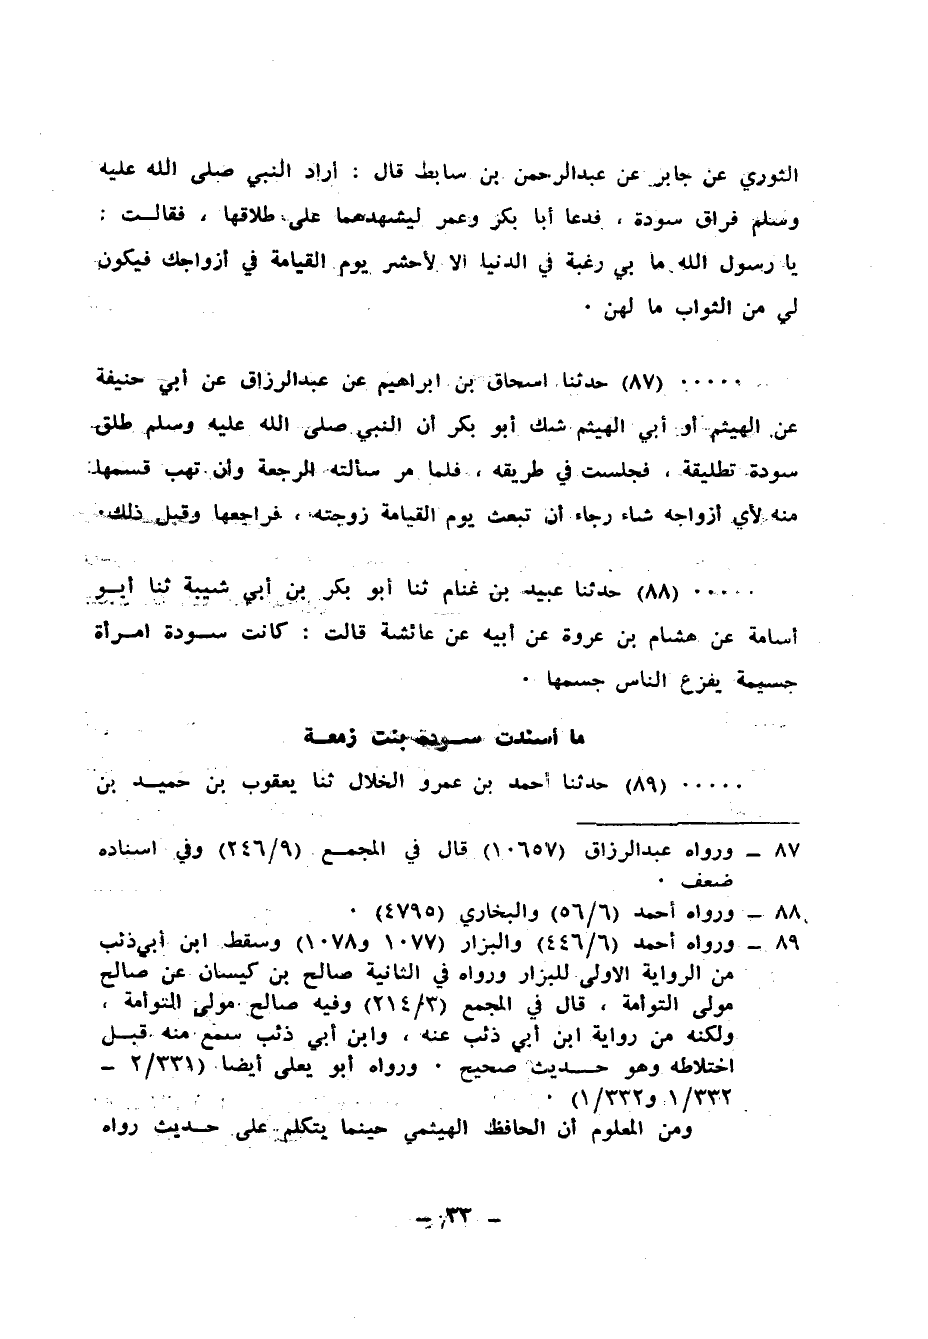 الثوري عن جابر عن عبدالرحمن بن سابط قال : أراد النبي صلى الله عليه
وسلم فراق سودة ، فدعا أبا بكر وعمر ليشهدهما على طلاقها ، فقالت :
يا رسول الله ما بي رغبة في الدنيا الا لأحشر يوم القيامة في أزواجك فيكون
لي من الثواب ما لهن ٠
٠٠٠٠٠ (٨٧) حدثنا اسحاق بن ابراهيم عن عبدالرزاق عن أبي حنيفة
عن الهيثم أو أبي الهيثم شك أبو بكر أن النبي صلى الله عليه وسلم طلق
سودة تطليقة ، فجلست في طريقه ، فلما مر سألته الرجعة وأن تهب قسمها
منه لأي أزواجه شاء رجاء أن تبعث يوم القيامة زوجته ، فراجعها وقبل ذلك ٠
٠٠٠٠٠ (٨٨) حدثنا عبيد بن غنام ثنا أبو بكر بن أبي شيبة ثنا أبو
أسامة عن هشام بن عروة عن أبيه عن عائشة قالت : كانت سودة امرأة
جسيمة يفزع الناس جسمها ٠
ما أسندت سودة بنت زمعة
٠٠٠٠٠ (٨٩) حدثنا أحمد بن عمرو الخلال ثنا يعقوب بن حميد بن
٨٧ ـ ورواه عبدالرزاق (١٠٦٥٧) قال في المجمع (٢٤٦/٩) وفي اسناده
ضعف ٠
٨٨ ـ ورواه أحمد (٥٦/٦) والبخاري (٤٧٩٥) ٠
٨٩ ـ ورواه أحمد (٤٤٦/٦) والبزار (١٠٧٧ و١٠٧٨) وسقط ابن أبي ذئب
من الرواية الاولى للبزار ورواه في الثانية صالح بن كيسان عن صالح
مولى التوأمة ، قال في المجمع (٢١٤/٣) وفيه صالح مولى التوأمة ،
ولكنه من رواية ابن أبي ذئب عنه ، وابن أبي ذئب سمع منه قبل
اختلاطه وهو حديث صحيح ٠ ورواه أبو يعلى أيضا (٢/٣٣١ ـ
١/٣٣٢ و١/٣٣٢) ٠
ومن المعلوم أن الحافظ الهيثمي حينما يتكلم على حديث رواه
ـ ٣٣ ـ